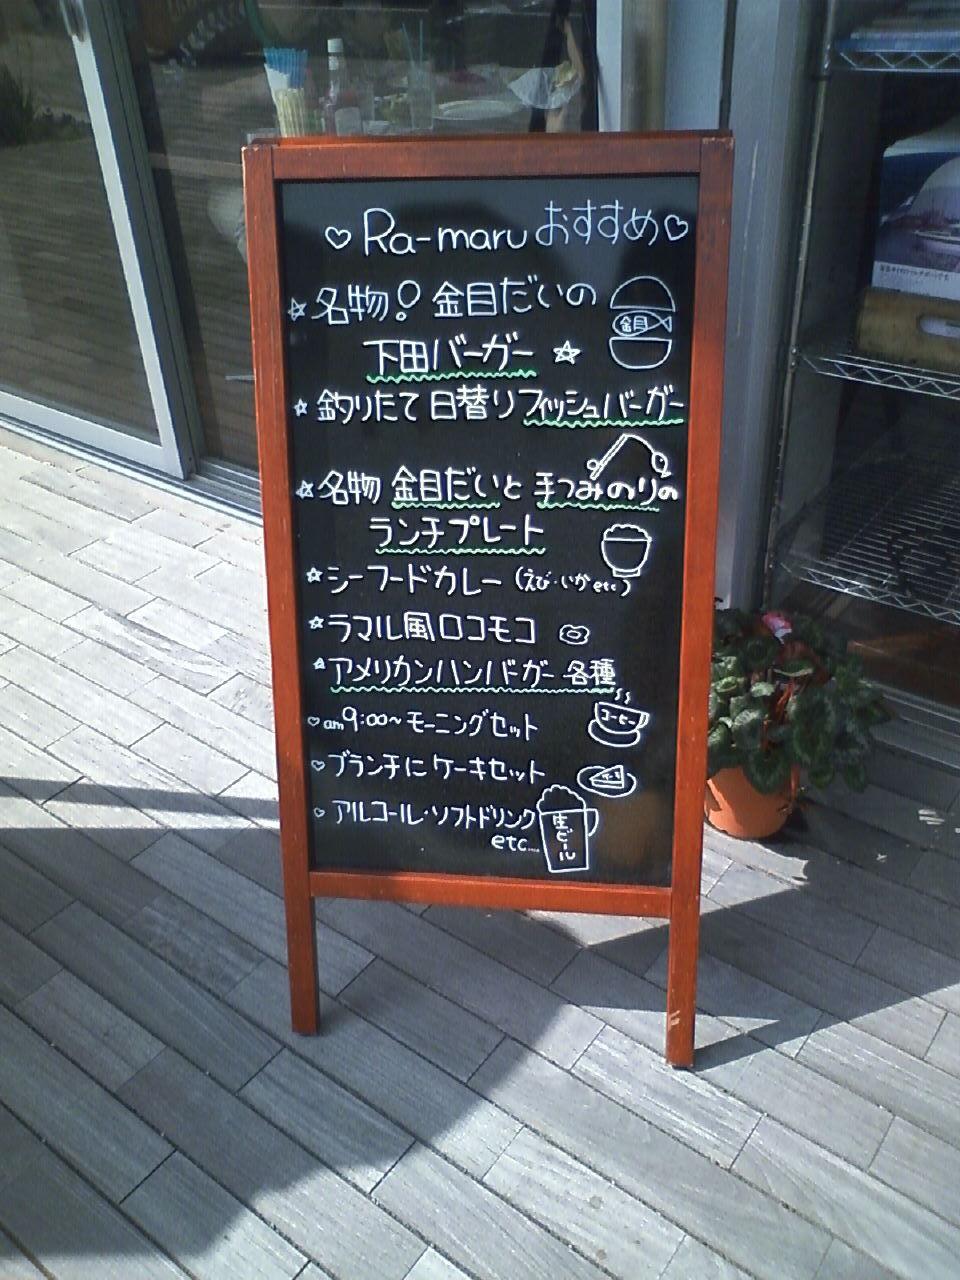 ♡ Ra-maru おすすめ♡
☆名物! 金目だいの
金目
下田バーガー ☆
☆釣りたて 日替りフィッシュバーガー
☆名物 金目だいと 手つみのりの
ランチプレート
☆シーフードカレー (えび・いかetc)
☆ラマル風ロコモコ
☆アメリカンハンバーガー 各種
♡am9:00~モーニングセット
コーヒー
♡ブランチに ケーキセット
♡アルコール・ソフトドリンク
etc...
生ビール